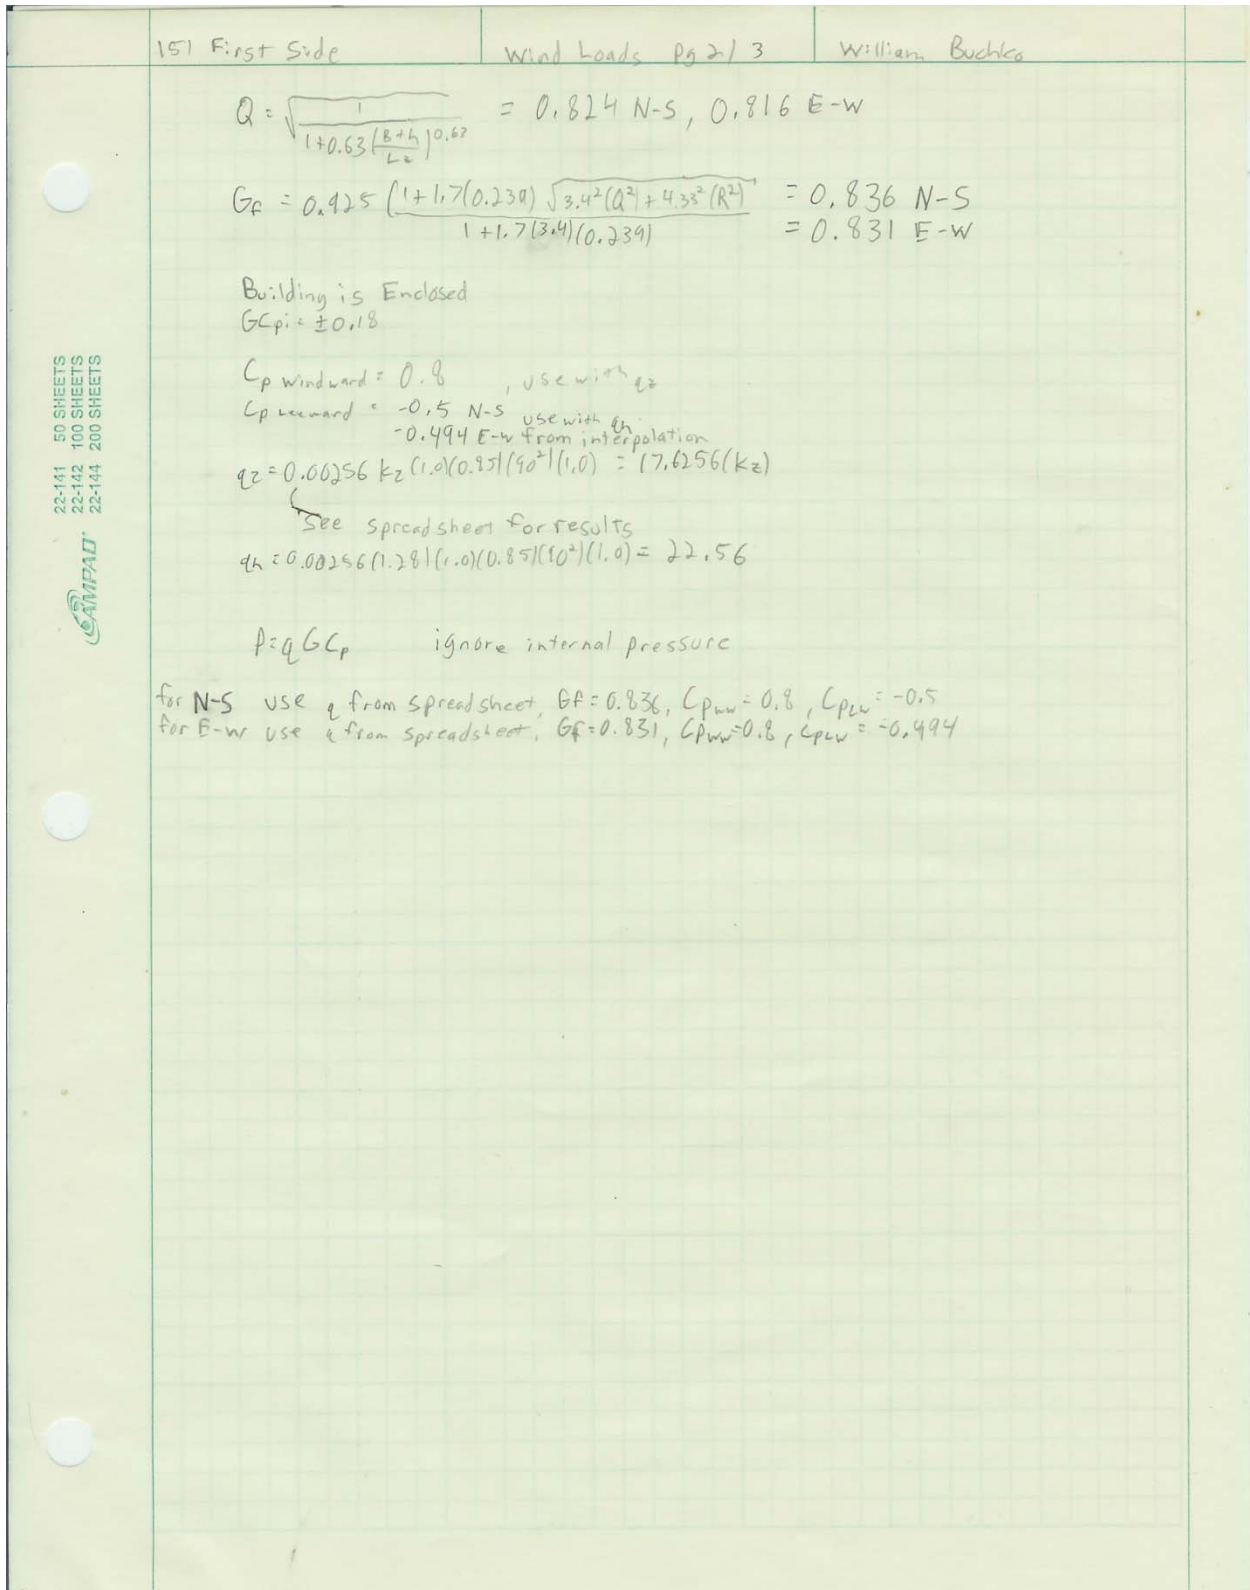 151 First Side Wind Loads Pg 2/3 William Buchko
Q = √(1 / (1+0.63((B+h)/Lz)^0.63)) = 0.824 N-S, 0.816 E-W
Gf = 0.925 (1+1.7(0.239) √(3.4²(Q²)+4.33²(R²)) / 1+1.7(3.4)(0.239) = 0.836 N-S
= 0.831 E-W
Building is Enclosed
GCpi = ±0.18
Cp windward = 0.8 , use with qz
Cp Leeward = -0.5 N-S use with qh
-0.494 E-W from interpolation
qz = 0.00256 kz (1.0)(0.85)(90²)(1.0) = 17.6256(kz)
See spreadsheet for results
qh = 0.00256(1.28)(1.0)(0.85)(90²)(1.0) = 22.56
P=qGCp ignore internal pressure
for N-S use q from spreadsheet, Gf = 0.836, Cpww = 0.8, CpLW = -0.5
for E-W use q from spreadsheet, Gf = 0.831, Cpww = 0.8, CpLW = -0.494
22-141 50 SHEETS
22-142 100 SHEETS
22-144 200 SHEETS
AMPAD